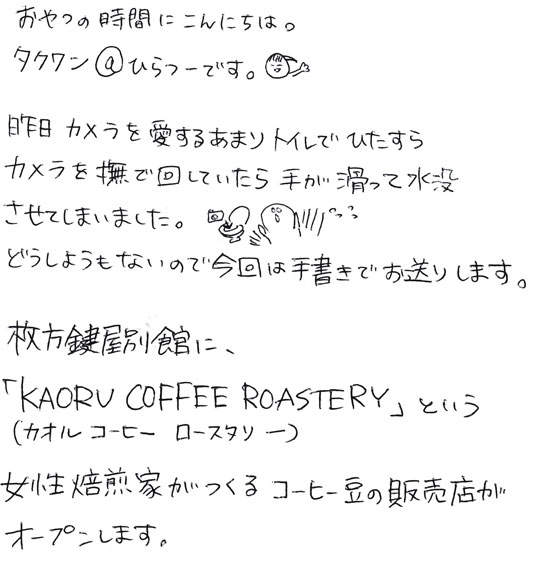 おやつの時間にこんにちは。
タクワン@ひらつーです。
昨日カメラを愛するあまりトイレでひたすら
カメラを撫で回していたら手が滑って水没
させてしまいました。
どうしようもないので今回は手書きでお送りします。
枚方鍵屋別館に、
「KAORU COFFEE ROASTERY」という
(カオル コーヒー ロースタリー)
女性焙煎家がつくるコーヒー豆の販売店が
オープンします。